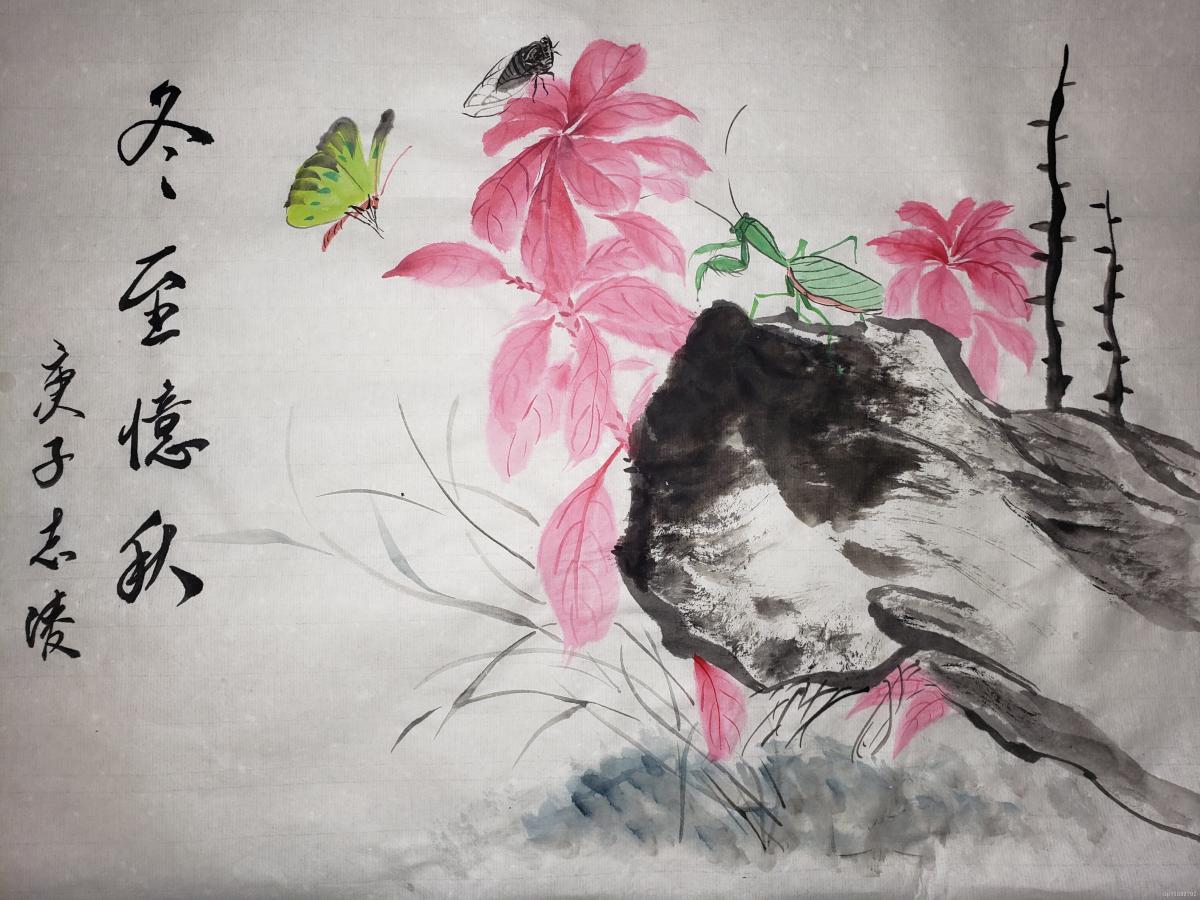 冬至憶秋
庚子志凌